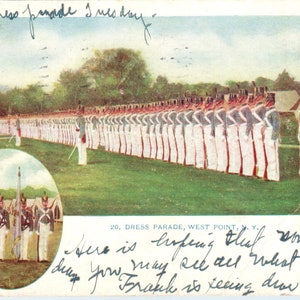 Dress parade Tuesday,
20. DRESS PARADE, WEST POINT, N. Y.
Here is hoping that some
day you may see all what
Frank is seeing